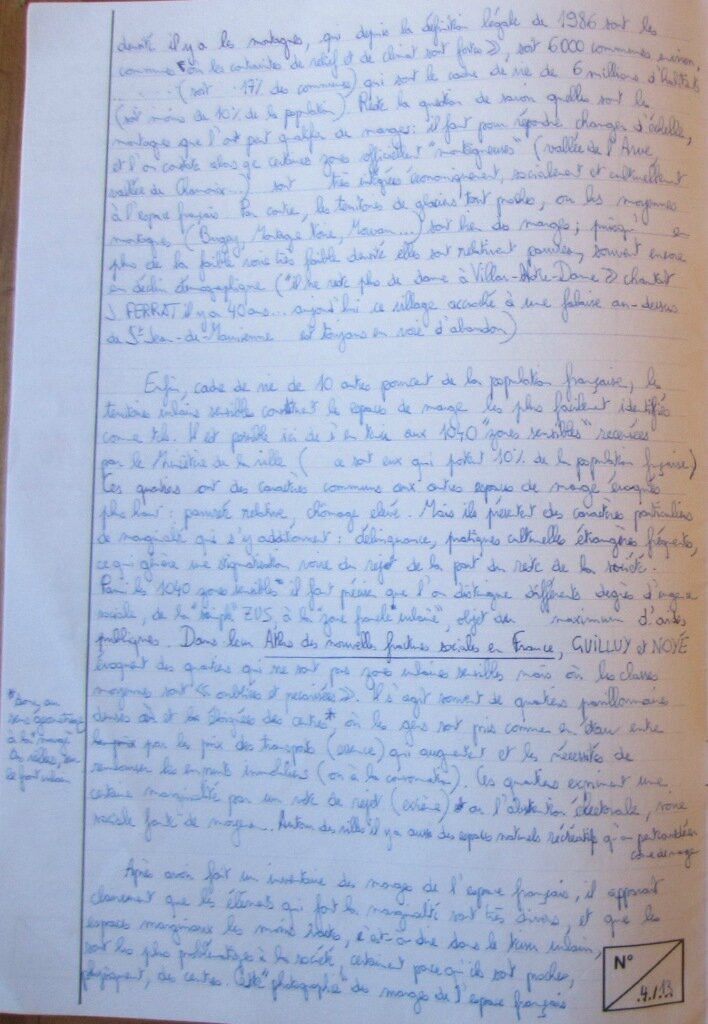 densité il y a les montagnes, qui depuis la définition légale de 1986 sont les
communes "où les contraintes de relief et de climat sont fortes", soit 6000 communes environ
(soit 17% des communes) qui sont le cadre de vie de 6 millions d'habitants
(soit moins de 10% de la population). Reste la question de savoir quelles sont les
montagnes que l'on peut qualifier de marges : il faut pour répondre changer d'échelle,
et l'on constate alors que certaines zones officiellement "montagneuses" (vallée de l'Arve,
vallée de Chamonix...) sont très intégrées économiquement, socialement et culturellement
à l'espace français. Par contre, les territoires de glaciers tout proches, ou les moyennes
montagnes (Bugey, Morvan...) sont bien des marges ; puisqu'en
plus de la faible voire très faible densité elles sont relativement pauvres, souvent encore
en déclin démographique ("il ne reste plus de dame à Villar-Notre-Dame" chantait
J. FERRAT il y a 40 ans... aujourd'hui ce village accroché à une falaise au-dessus
de St-Jean-de-Maurienne est toujours en voie d'abandon)
Enfin, cadre de vie de 10 autres pourcent de la population française, les
territoires urbains sensibles constituent les espaces de marge les plus facilement identifiés
comme tels. Il est possible ici de s'en tenir aux 1040 "zones sensibles" recensées
par le Ministère de la ville ( ce sont eux qui portent 10% de la population française)
Ces quartiers ont des caractères communs aux autres espaces de marge évoqués
plus haut : pauvreté relative, chômage élevé. Mais ils présentent des caractères particuliers
de marginalité qui s'y additionnent : délinquance, pratiques culturelles étrangères fréquentes,
ce qui génère une stigmatisation voire du rejet de la part du reste de la société.
Parmi les 1040 zones sensibles" il faut préciser que l'on distingue différents degrés d'urgence
sociale, de la "simple" ZUS, à la "zone franche urbaine", objet du maximum d'aides
publiques. Dans leur Atlas des nouvelles fractures sociales en France, GUILLUY et NOYÉ
évoquent des quartiers qui ne sont pas zones urbaines sensibles mais où les classes
moyennes sont "oubliées et précarisées". Il s'agit souvent de quartiers pavillonnaires
denses et éloignés des centres*, où les gens sont pris comme en étau entre
le prix des transports (essence) qui augmentent et les nécessités de
rembourser les emprunts immobiliers (ou à la consommation). Ces quartiers expriment une
certaine marginalité par un vote de rejet (extrême) ou l'abstention électorale, voire
sociale faute de moyens... Autour des villes il y a aussi des espaces naturels récréatifs qu'on peut considérer
comme marge
*donc, au
sens géométrique
à la "marge"
le front urbain
Après avoir fait un inventaire des marges de l'espace français, il apparaît
clairement que les éléments qui font la marginalité sont très divers, et que les
espaces marginaux les moins isolés, c'est-à-dire dans le tissu urbain,
sont les plus problématiques à la société, certainement parce qu'ils sont proches,
physiquement, des centres. Cette "photographie" des marges de l'espace français
N°
4/13